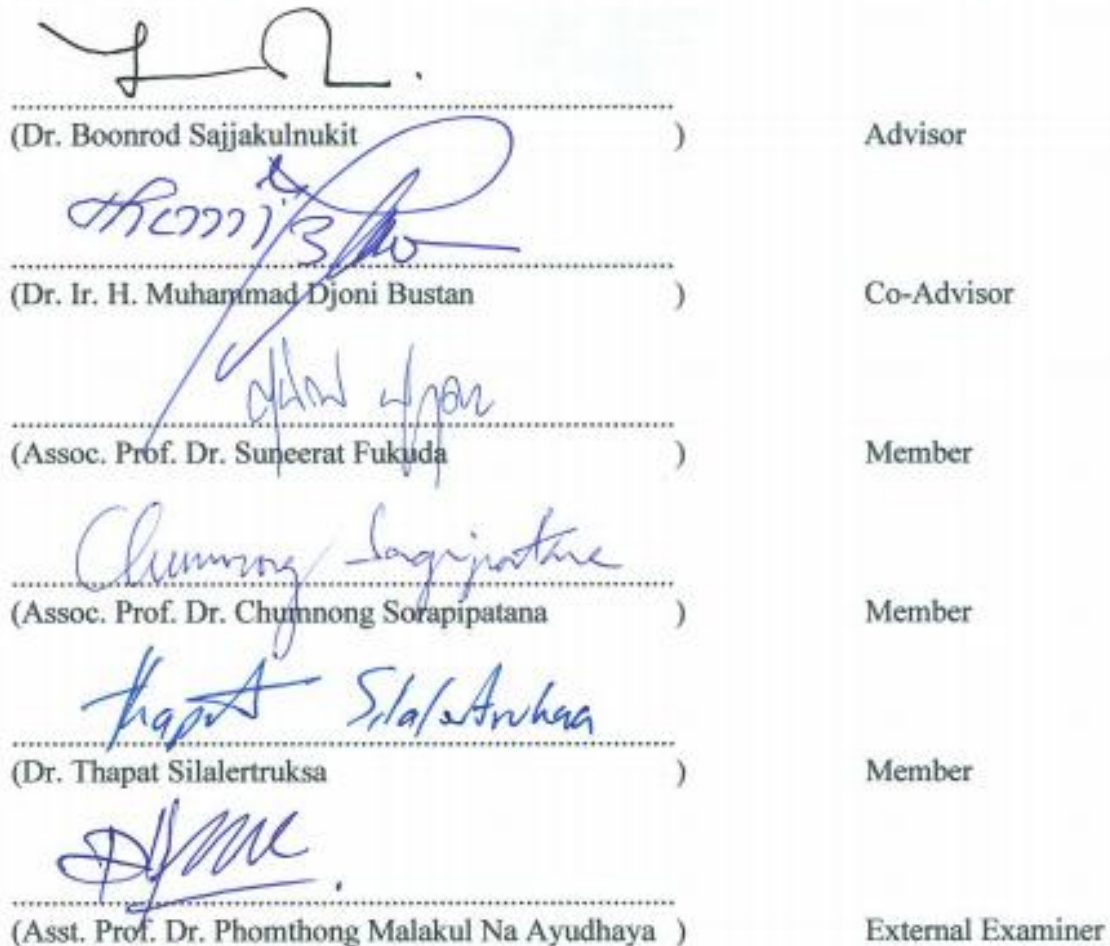 (Dr. Boonrod Sajjakulnukit ) Advisor
(Dr. Ir. H. Muhammad Djoni Bustan ) Co-Advisor
(Assoc. Prof. Dr. Suneerat Fukuda ) Member
Chumnong Sorapipatana
(Assoc. Prof. Dr. Chumnong Sorapipatana ) Member
Thapat Silalertruksa
(Dr. Thapat Silalertruksa ) Member
(Asst. Prof. Dr. Phomthong Malakul Na Ayudhaya ) External Examiner